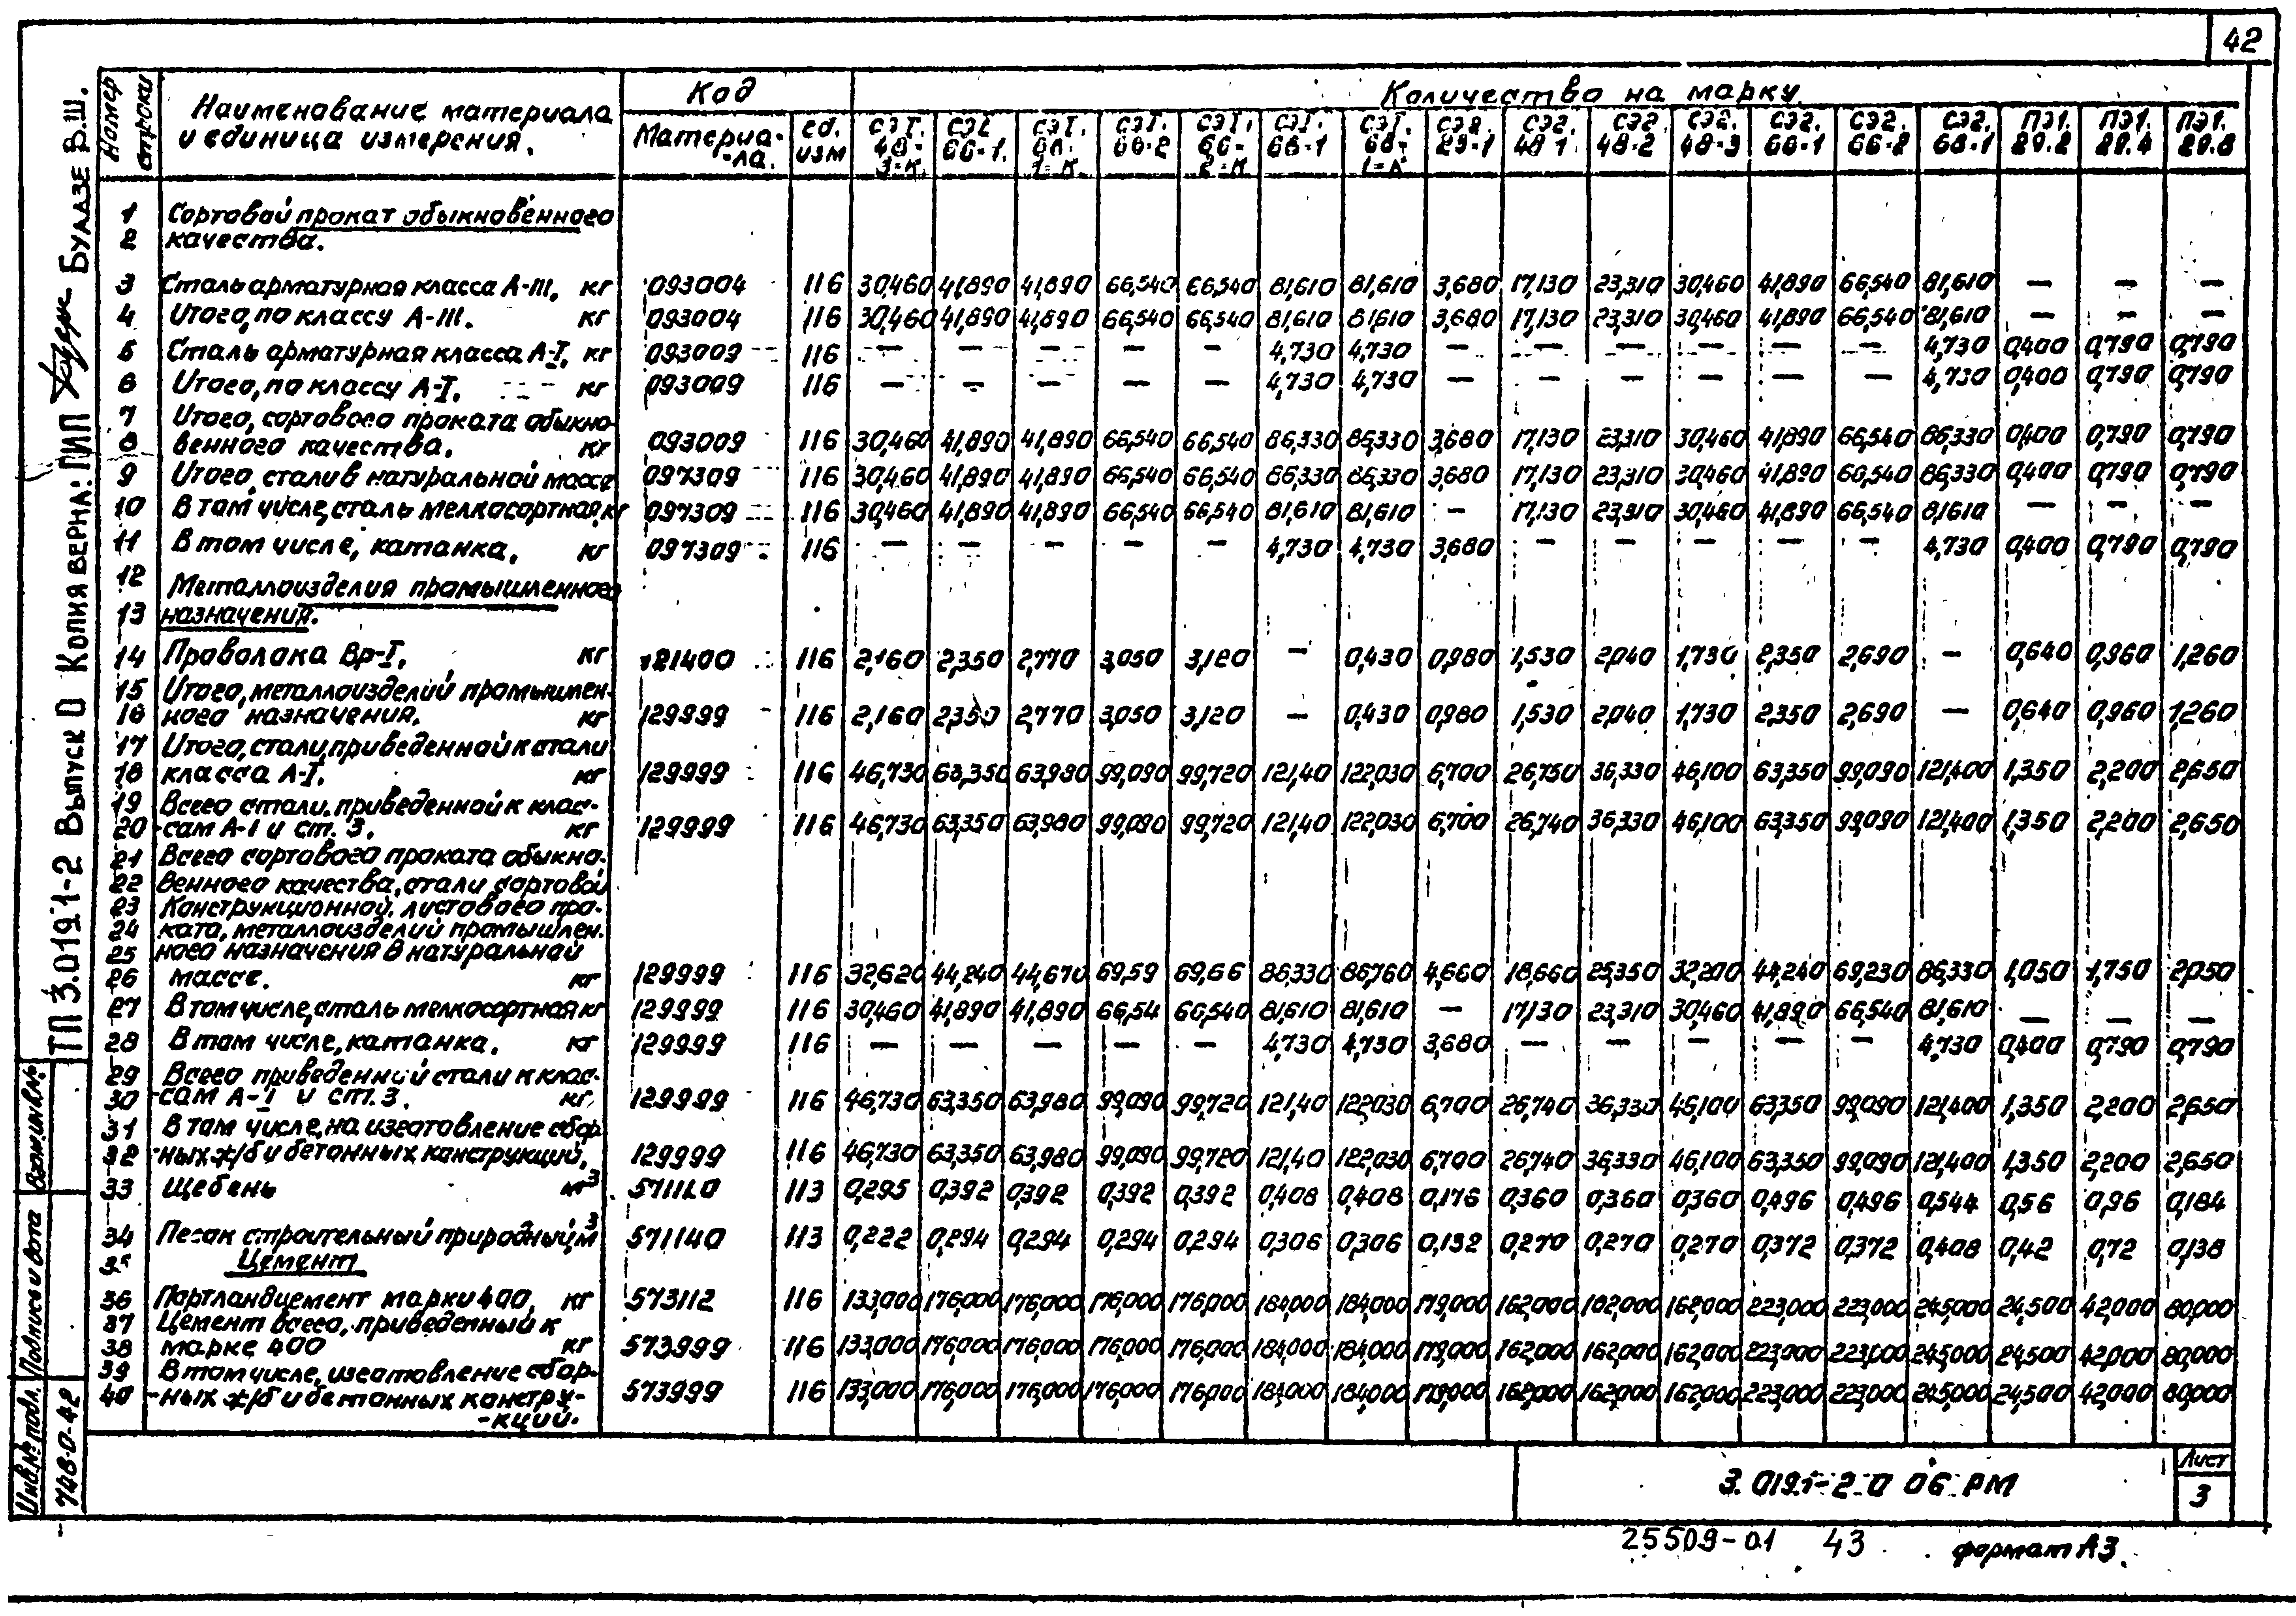 42
Номер строки
Наименование материала и единица измерения.
Код
Материа-ла.
ед. изм
Количество на марку.
СЭ1. 48-3-К. СЭ1 66-1. СЭ1. 66-1-К. СЭ1. 66-2 СЭ1. 66-2-К СЭ1. 68-1 СЭ1. 68-1-К СЭ2. 29-1 СЭ2. 48-1. СЭ2 48-2 СЭ2. 48-3 СЭ2. 66-1 СЭ2. 66-2 СЭ2. 68-1 ПЭ1. 29.2 ПЭ1. 29.4 ПЭ1. 29.8
1 Сортовой прокат обыкновенного
2 качества.
3 Сталь арматурная класса А-III, кг 093004 116 30,460 41,890 41,890 66,540 66,540 81,610 81,610 3,680 17,130 23,310 30,460 41,890 66,540 81,610 — — —
4 Итого, по классу А-III. кг 093004 116 30,460 41,890 41,890 66,540 66,540 81,610 81,610 3,680 17,130 23,310 30,460 41,890 66,540 81,610 — — —
5 Сталь арматурная класса А-I, кг 093009 116 — — — — — 4,730 4,730 — — — — — — 4,730 0,400 0,790 0,790
6 Итого, по классу А-I. кг 093009 116 — — — — — 4,730 4,730 — — — — — — 4,730 0,400 0,790 0,790
7 Итого, сортового проката обыкно-
8 венного качества. кг 093009 116 30,460 41,890 41,890 66,540 66,540 86,330 86,330 3,680 17,130 23,310 30,460 41,890 66,540 86,330 0,400 0,790 0,790
9 Итого, стали в натуральной массе 097309 116 30,460 41,890 41,890 66,540 66,540 86,330 86,330 3,680 17,130 23,310 30,460 41,890 66,540 86,330 0,400 0,790 0,790
10 В том числе, сталь мелкосортная, кг 097309 116 30,460 41,890 41,890 66,540 66,540 81,610 81,610 — 17,130 23,310 30,460 41,890 66,540 81,610 — — —
11 В том числе, катанка. кг 097309 116 — — — — — 4,730 4,730 3,680 — — — — — 4,730 0,400 0,790 0,790
12 Металлоизделия промышленного
13 назначения.
14 Проволока Вр-I, кг 121400 116 2,160 2,350 2,770 3,050 3,120 — 0,430 0,980 1,530 2,040 1,730 2,350 2,690 — 0,640 0,960 1,260
15 Итого, металлоизделий промышлен-
16 ного назначения. кг 129999 116 2,160 2,350 2,770 3,050 3,120 — 0,430 0,980 1,530 2,040 1,730 2,350 2,690 — 0,640 0,960 1,260
17 Итого, стали, приведенной к стали
18 класса А-I. кг 129999 116 46,730 63,350 63,980 99,090 99,720 121,40 122,030 6,700 26,750 36,330 46,100 63,350 99,090 121,400 1,350 2,200 2,650
19 Всего стали, приведенной к клас-
20 -сам А-I и ст. 3. кг 129999 116 46,730 63,350 63,980 99,090 99,720 121,40 122,030 6,700 26,740 36,330 46,100 63,350 99,090 121,400 1,350 2,200 2,650
21 Всего сортового проката обыкно-
22 венного качества, стали сортовой
23 Конструкционной, листового про-
24 ката, металлоизделий промышлен-
25 ного назначения в натуральной
26 массе. кг 129999 116 32,620 44,240 44,670 69,59 69,66 86,330 86,760 4,660 18,660 25,350 32,200 44,240 69,230 86,330 1,050 1,750 2,050
27 В том числе, сталь мелкосортная кг 129999 116 30,460 41,890 41,890 66,54 66,540 81,610 81,610 — 17,130 23,310 30,460 41,890 66,540 81,610 — — —
28 В том числе, катанка. кг 129999 116 — — — — — 4,730 4,730 3,680 — — — — — 4,730 0,400 0,790 0,790
29 Всего приведенной стали к клас-
30 -сам А-I и ст. 3. кг, 129999 116 46,730 63,350 63,980 99,090 99,720 121,40 122,030 6,700 26,740 36,330 46,100 63,350 99,090 121,400 1,350 2,200 2,650
31 В том числе, на изготовление сбор-
32 -ных ж/б и бетонных конструкций, 129999 116 46,730 63,350 63,980 99,090 99,720 121,40 122,030 6,700 26,740 36,330 46,100 63,350 99,090 121,400 1,350 2,200 2,650
33 Щебень м³ 571110 113 0,295 0,392 0,392 0,392 0,392 0,408 0,408 0,176 0,360 0,360 0,360 0,496 0,496 0,544 0,56 0,96 0,184
34 Песок строительный природный м³ 571140 113 0,222 0,294 0,294 0,294 0,294 0,306 0,306 0,132 0,270 0,270 0,270 0,372 0,372 0,408 0,42 0,72 0,138
35 Цемент
36 Портландцемент марки 400, кг 573112 116 133,000 176,000 176,000 176,000 176,000 184,000 184,000 179,000 162,000 162,000 162,000 223,000 223,000 245,000 24,500 42,000 80,000
37 Цемент всего, приведенный к
38 марке 400 кг 573999 116 133,000 176,000 176,000 176,000 176,000 184,000 184,000 179,000 162,000 162,000 162,000 223,000 223,000 245,000 24,500 42,000 80,000
39 В том числе, изготовление сбор-
40 -ных ж/б и бетонных констру- 573999 116 133,000 176,000 176,000 176,000 176,000 184,000 184,000 179,000 162,000 162,000 162,000 223,000 223,000 245,000 24,500 42,000 80,000
-кций.
ТП 3.019.1-2 Выпуск 0 Копия верна: ГИП Буадзе В.Ш.
Взам.инв.№
Подпись и дата
Инв.№ подл.
748-0-42
3.019.1-2.0 06 РМ
Лист
3
25509-01 43 формат А3